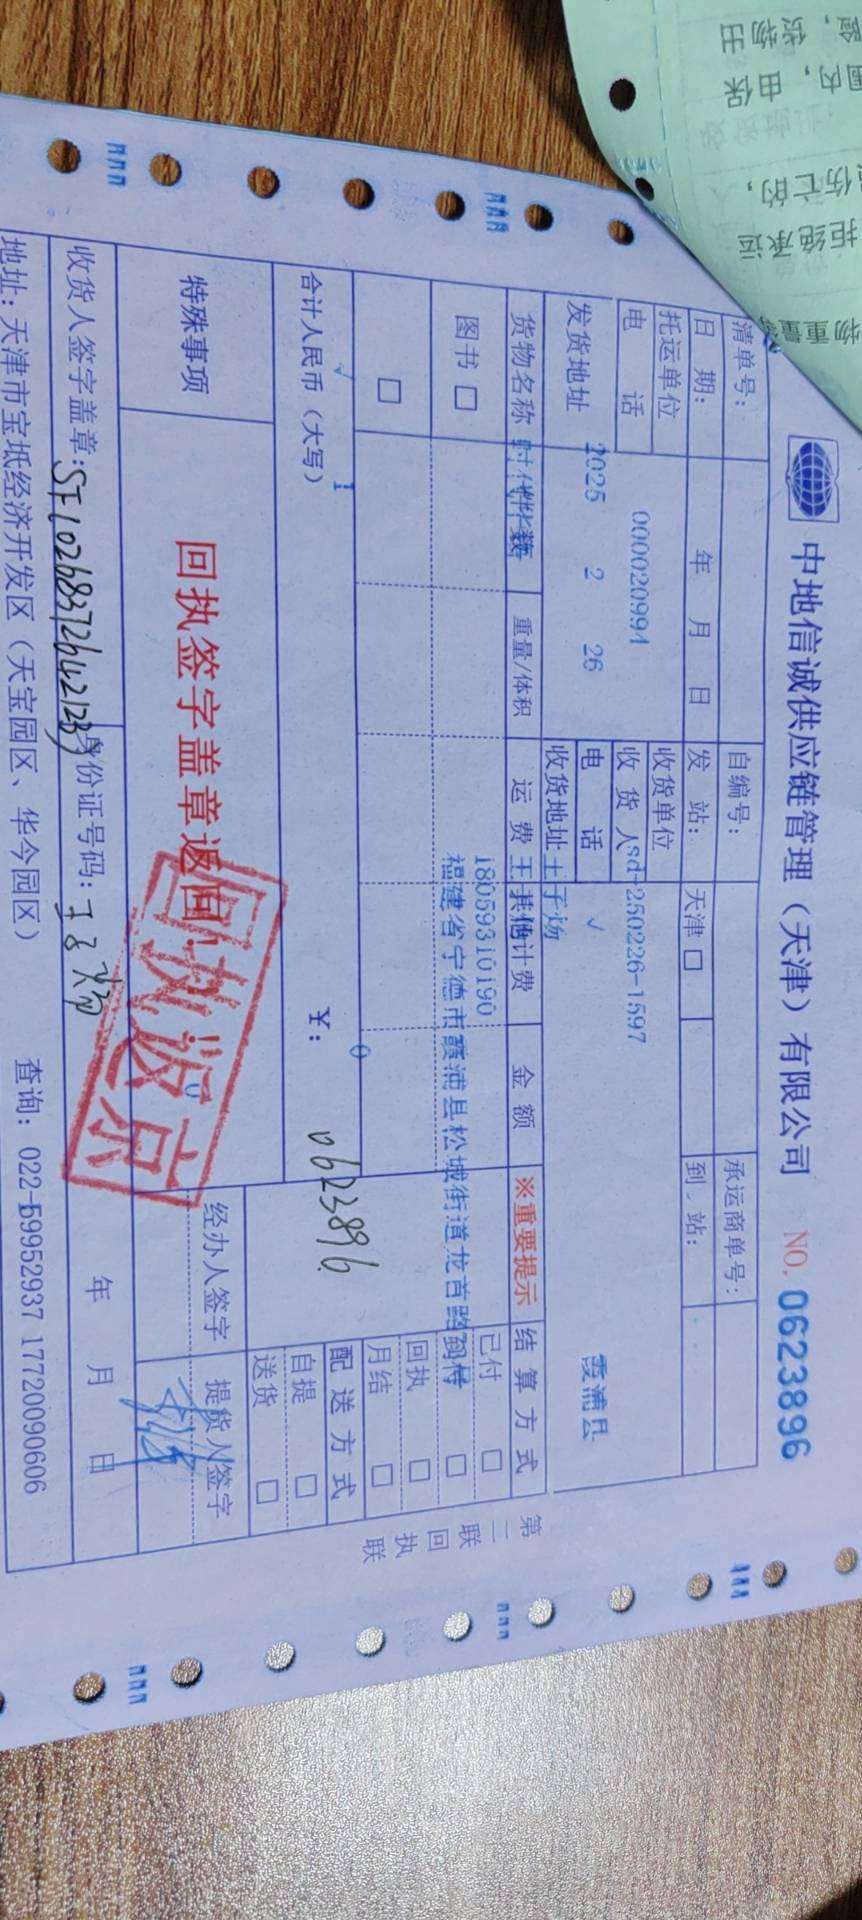 中地信诚供应链管理（天津）有限公司 NO. 0623896
清单号： 自编号： 承运商单号：
日 期： 年 月 日 发 站： 天津□ 到 站：
托运单位 收货单位
000020994 sd-250226-1597 霞浦县
电 话 收 货 人
2025 2 26 电 话 √
发货地址 收货地址 王子炀
货物名称 件数 重量/体积 运 费 其他计费 金 额 ※重要提示 结 算 方 式
18059310190
图书 □ 已付 □
福建省宁德市霞浦县松城街道龙首路 到付 □
□ 回执 □
月结 □
1 0
合计人民币（大写） ¥： 配 送 方 式
√
0623896
自提 □
送货 □
特殊事项 回执签字盖章返回 经办人签字 提货人签字
回执返京
0
收货人签字盖章： SF1026837264212 身份证号码： 王子炀 年 月 日
地址：天津市宝坻经济开发区（天宝园区、华今园区） 查询：022-59952937 17720090606
第二联 回执联
险，货物出
国内，由保
伤亡的，
拒绝承运
物重量